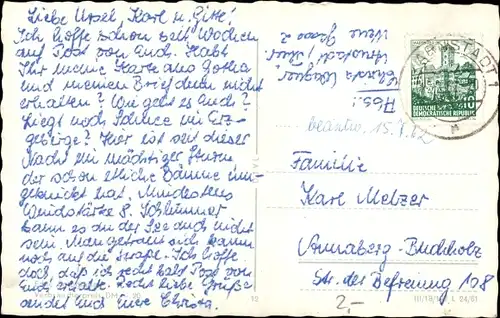 Liebe Ursel, Karl u. Gitte!
Ich hoffe schon seit Wochen
auf Post von Euch. Habt
Ihr meine Karte aus Gotha
und meinen Brief denn nicht
erhalten? Wie geht es Euch?
Liegt noch Schnee im Erz-
gebirge? Hier ist seit dieser
Nacht ein mächtiger Sturm
der schon etliche Bäume um-
geknickt hat, Mindestens
Windstärke 8. Schlimmer
kann es an der See auch nicht
sein. Man getraut sich kaum
noch auf die Straße. Ich hoffe
doch, daß ich recht bald Post von
Euch erhalte. Recht liebe Grüße
sendet Euch Eure Christa.
Abs.:
Christa Wagner
Arnstadt / Thür.
Neue Gasse 2
ARNSTADT 1
DEUTSCHE
DEMOKRATISCHE REPUBLIK
10
beantw. 15.
Familie
Karl Melzer
Annaberg-Buchholz
Str. der Befreiung 108
2,-